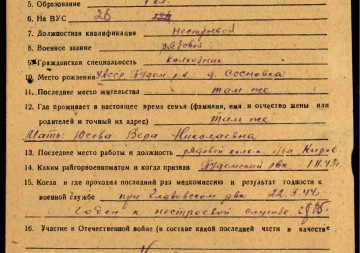 5. Образование
6. На ВУС 26 134
7. Должностная квалификация нестроевой
8. Военное звание рядовой
9. Гражданская специальность колхозник
10. Место рождения д. Сосновка
11. Последнее место жительства там же
12. Где проживает в настоящее время семья (фамилия, имя и отчество жены или
родителей и точный их адрес) там же
Мать: Юсева Вера Николаевна
13. Последнее место работы и должность рядовой колх.
14. Каким райгорвоенкоматом и когда призван рвк 1.11.43г.
15. Когда и где проходил последний раз медкомиссию и результат годности к
военной службе при рвк 22.3.44г.
Годен к нестроевой службе
16. Участие в Отечественной войне (в составе какой последней части и в качестве